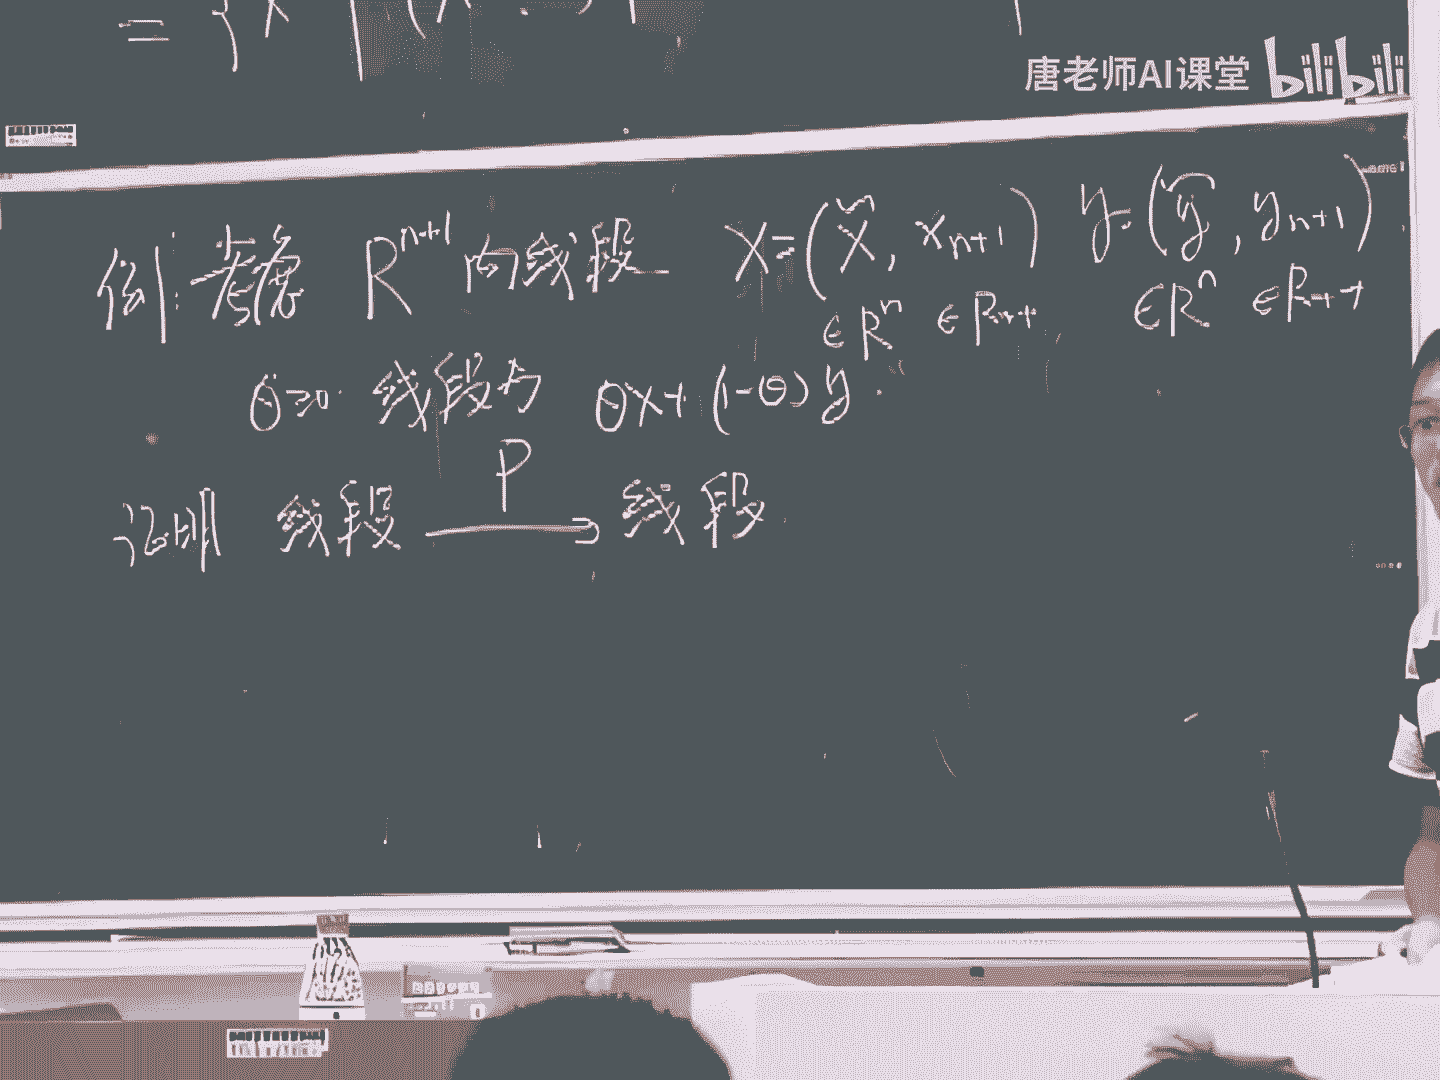 唐老师AI课堂 bilibili
例: 考虑 R^{n+1} 内线段 x = (x̃, x_{n+1}) y = (ỹ, y_{n+1})
∈R^n ∈R_{++} ∈R^n ∈R_{++}
θ≥0. 线段为 θx + (1-θ)y.
P
证明 线段 → 线段.